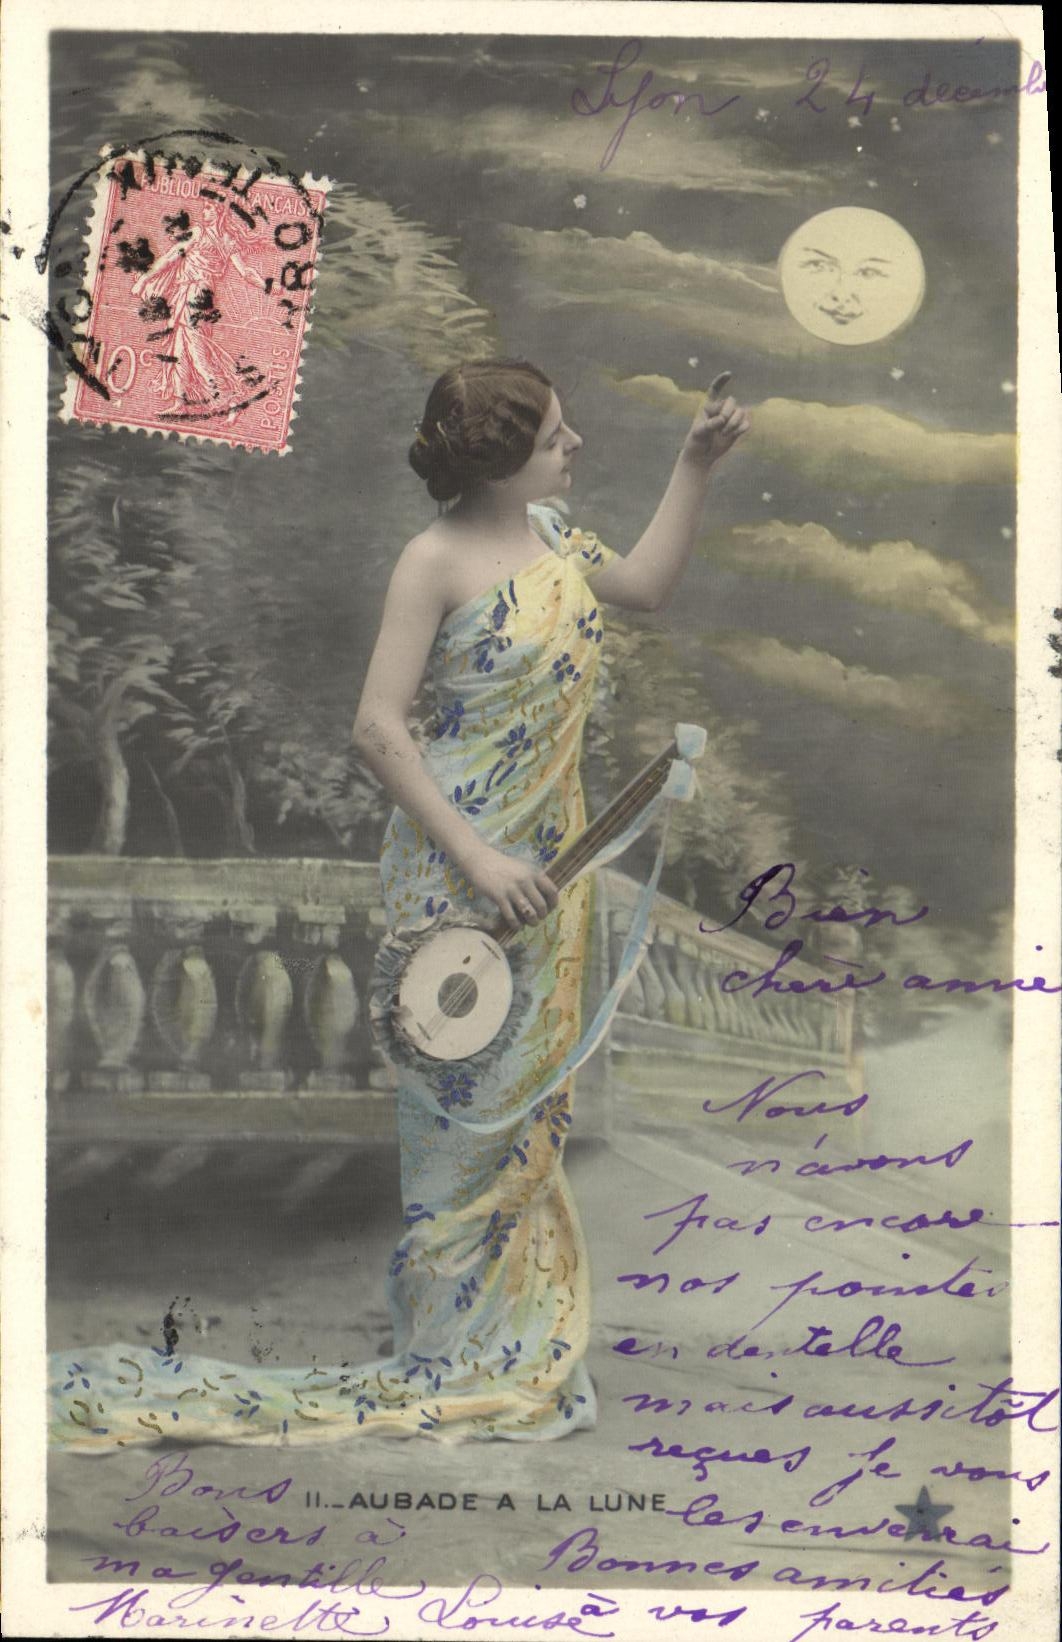 Lyon 24 décembr
RÉPUBLIQUE FRANÇAISE
10c
POSTES
Bien
chère annie
Nous
n'avons
pas encore
nos pointes
en dentelle
mais aussitôt
reçues je vous
les enverrai
II._AUBADE A LA LUNE
Bonnes amitiés
à vos parents
Bons
baisers à
ma gentille
Marinette Louise